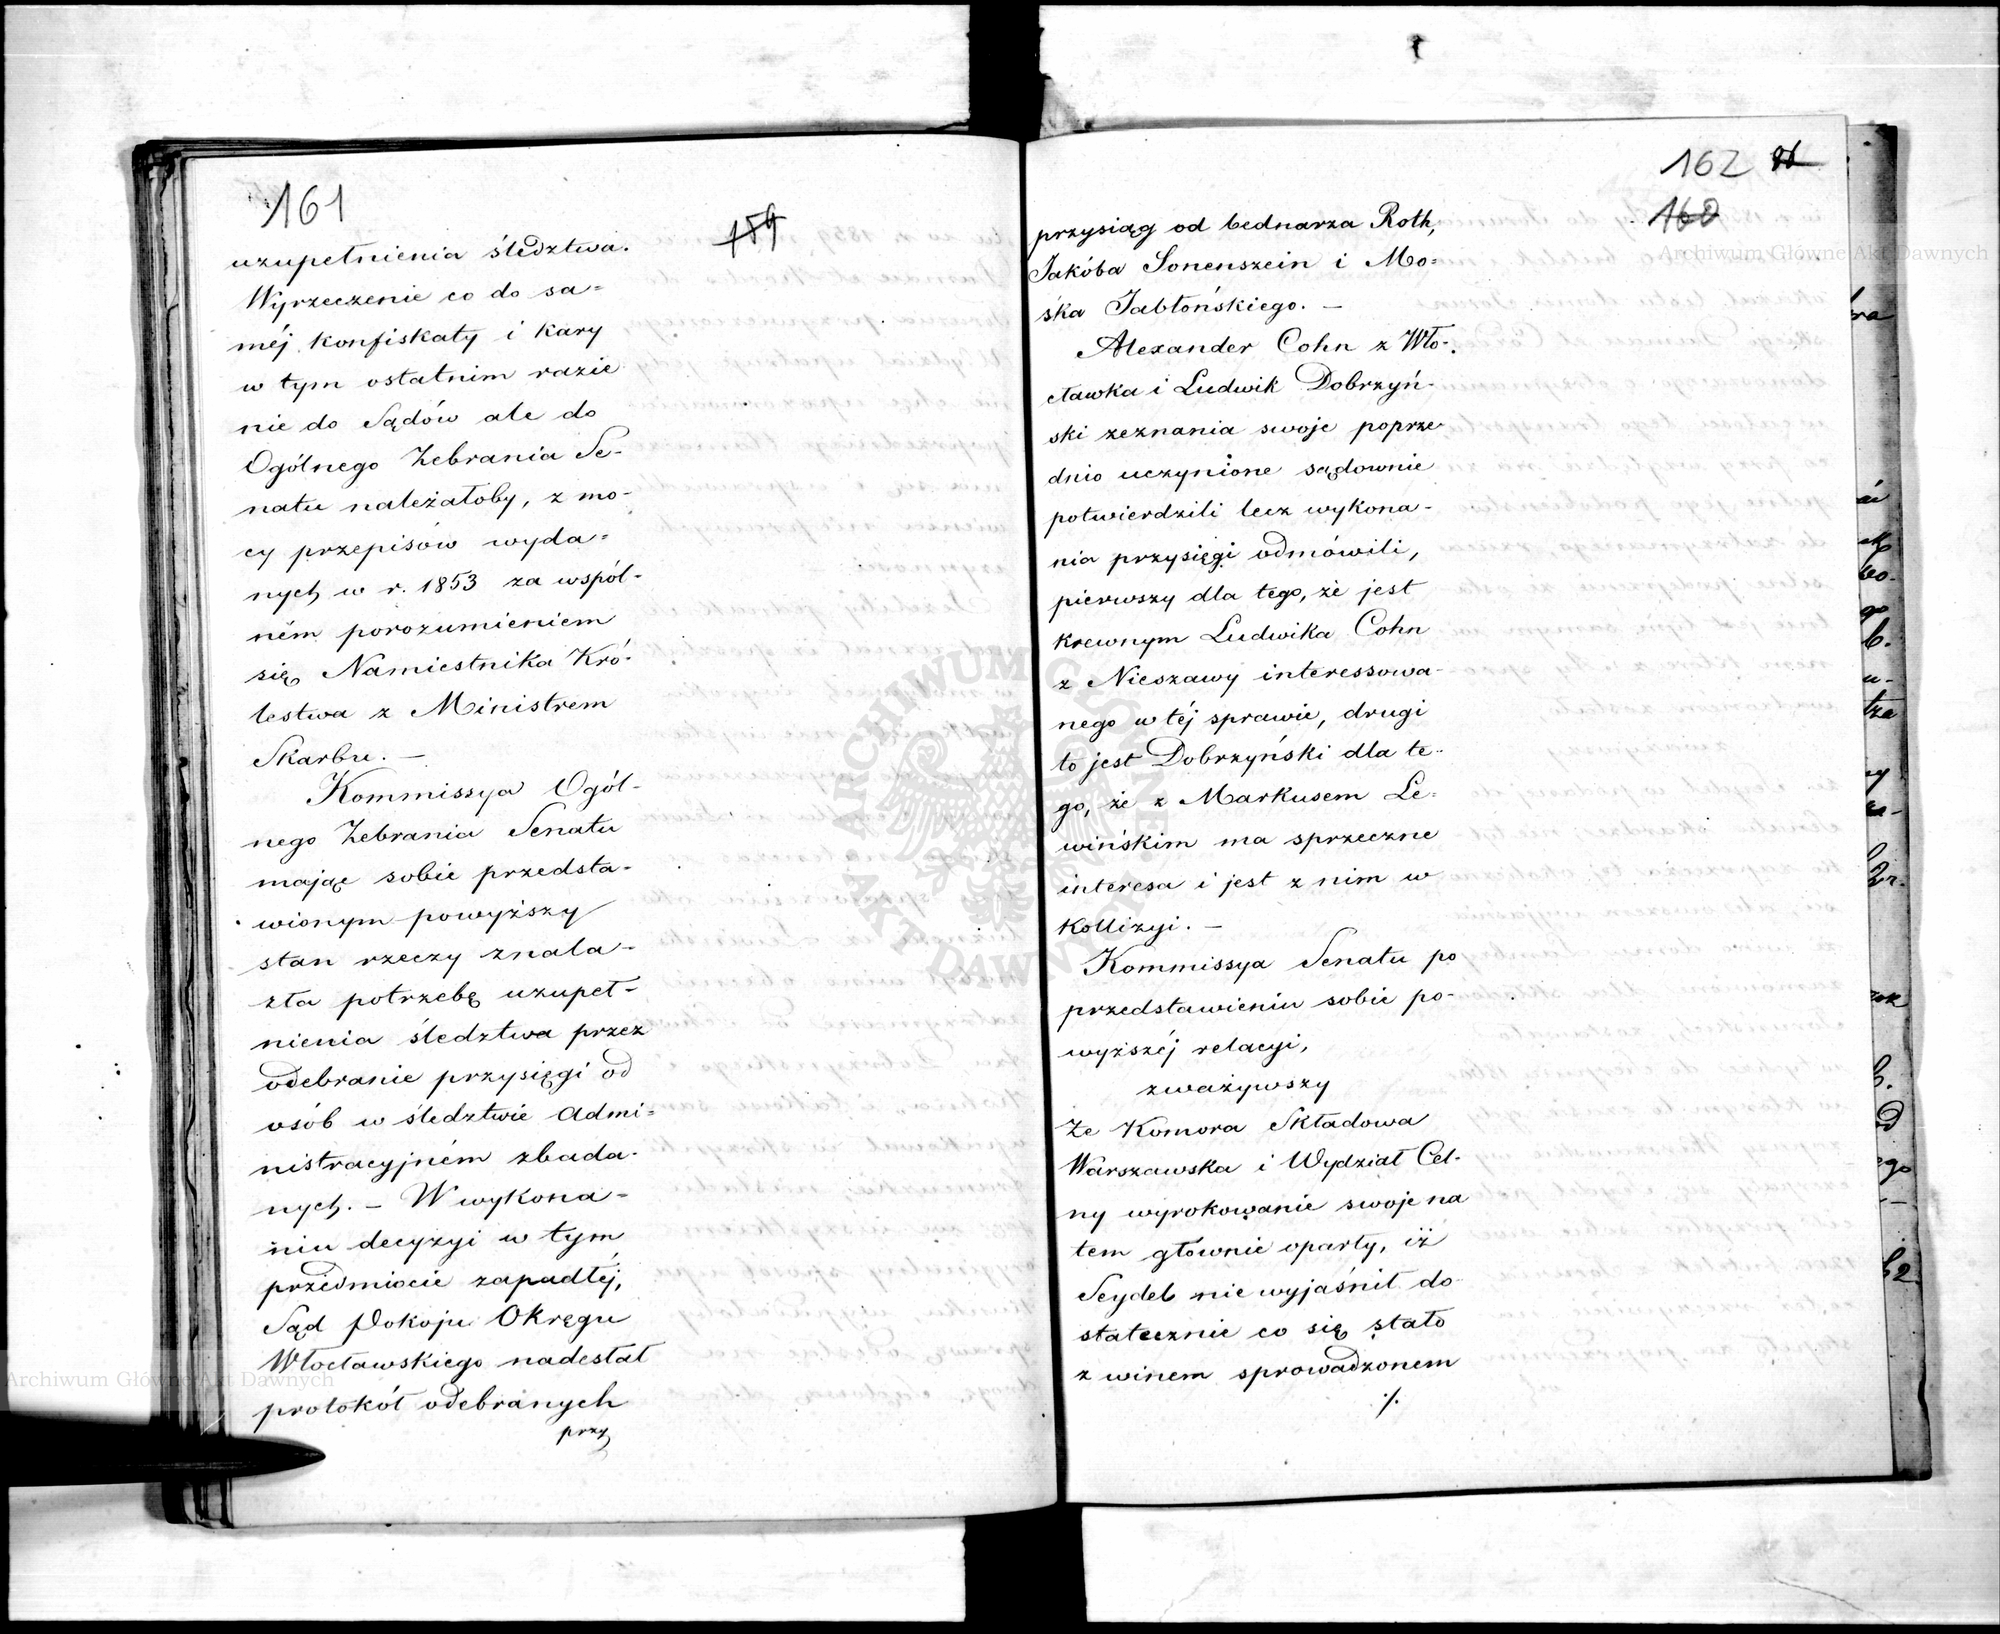 161
159
uzupełnienia śledztwa.
Wyrzeczenie co do sa=
méj konfiskaty i kary
w tym ostatnim razie
nie do Sądów ale do
Ogólnego Zebrania Se-
natu należałoby, z mo-
cy przepisów wyda=
nych w r. 1853 za wspól-
ném porozumieniem
się Namiestnika Kró-
lestwa z Ministrem
Skarbu. —
Kommissya Ogól-
nego Zebrania Senatu
mając sobie przedsta-
wionym powyższy
stan rzeczy znala-
zła potrzebę uzupeł-
nienia śledztwa przez
odebranie przysięgi od
osób w śledztwie admi=
nistracyjném zbada-
nych. — W wykona-
niu decyzyi w tym
przedmiocie zapadłéj,
Sąd Pokoju Okręgu
Włocławskiego nadesłał
protokół odebranych
przy
162
160
przysiąg od bednarza Roth,
Jakóba Sonenszein i Mo=
śka Jabłońskiego. —
Alexander Cohn z Wło-
cławka i Ludwik Dobrzyń-
ski zeznania swoje poprze-
dnio uczynione sądownie
potwierdzili lecz wykona-
nia przysięgi odmówili,
pierwszy dla tego, że jest
krewnym Ludwika Cohn
z Nieszawy interessowa-
nego w téj sprawie, drugi
to jest Dobrzyński dla te-
go, że z Markusem Le=
wińskim ma sprzeczne
interesa i jest z nim w
kollizyi. —
Kommissya Senatu po
przedstawieniu sobie po-
wyższéj relacyi,
zważywszy
że Komora Składowa
Warszawska i Wydział Cel-
ny wyrokowanie swoje na
tem głównie oparły, iż
Seydel nie wyjaśnił do-
statecznie co się stało
z winem sprowadzonem
./.
Archiwum Główne Akt Dawnych
Archiwum Główne Akt Dawnych
ARCHIWUM GŁÓWNE AKT DAWNYCH